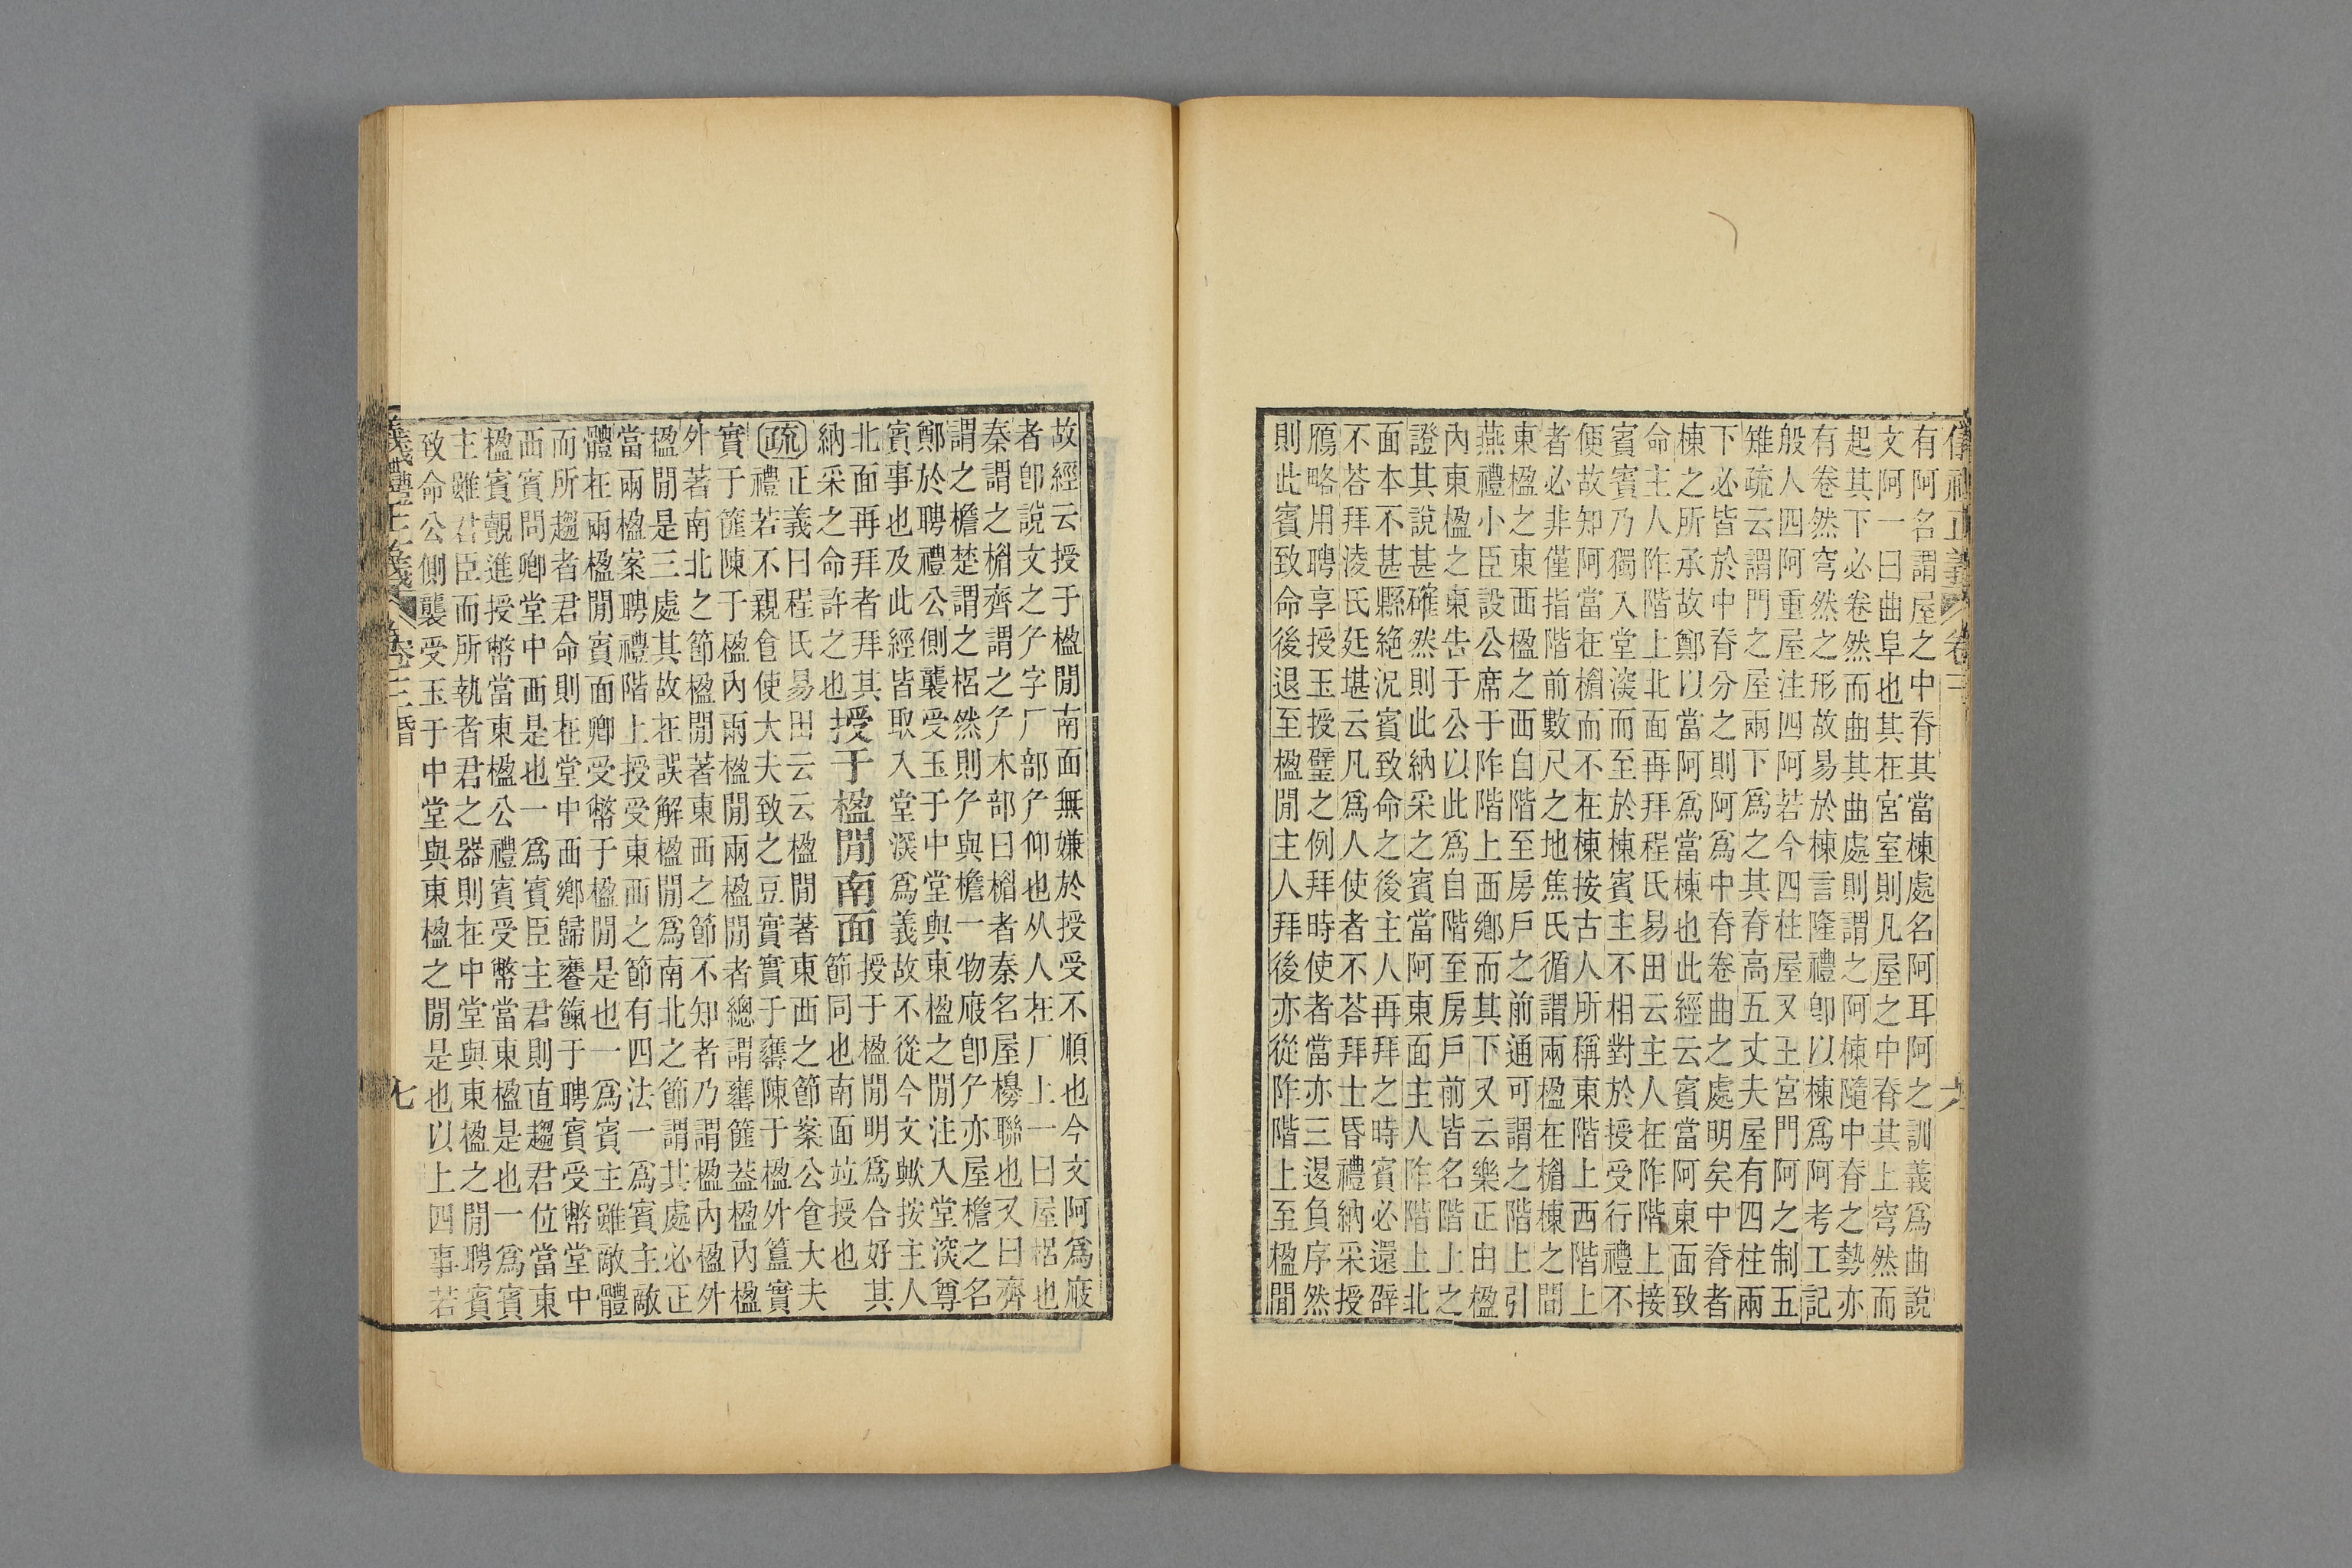 儀禮正義 卷三 六
有阿名謂屋之中脊其當棟處名阿耳阿之訓義爲曲說
文阿一曰曲阜也其在宮室則凡屋之中脊其上穹然而
起其下必卷然而曲其曲處則謂之阿棟隨中脊之勢亦
有卷然穹然之形故易於棟言隆禮卽以棟爲阿考工記
殷人四阿重屋注四阿若今四柱屋又王宮門阿之制五
雉疏云謂門之屋兩下爲之其脊高五丈夫屋有四柱兩
下必皆於中脊分之則阿爲中脊卷曲之處明矣中脊者
棟之所承故鄭以當阿爲當棟也此經云賓當阿東面致
命主人阼階上北面再拜程氏易田云主人在阼階上接
賓賓乃獨入堂深而至於棟賓主不相對於授受行禮不
便故知阿當在楣而不在棟按古人所稱東階上西階上
者必非僅指階前數尺之地焦氏循謂兩楹在楣棟之間
東楹之東西楹之西自階至房戶之前通可謂之階上引
燕禮小臣設公席于阼階上西鄉而其下又云樂正由楹
內東楹之東告于公以此爲自階至房戶前皆名階上之
證其說甚確然則此納采之賓當阿東面主人阼階上北
面本不甚縣絕況賓致命之後主人再拜之時賓必還辟
不荅拜淩氏廷堪云凡爲人使者不荅拜士昏禮納采授
鴈略用聘享授玉授璧之例拜時使者當亦三退負序然
則此賓致命後退至楹閒主人拜後亦從阼階上至楹閒
故經云授于楹閒南面無嫌於授受不順也今文阿爲庪
者卽說文之厃字厂部厃仰也从人在厂上一曰屋梠也
秦謂之楣齊謂之厃木部曰楣者秦名屋櫋聯也又曰齊
謂之檐楚謂之梠然則厃與檐一物庪卽厃亦屋檐之名
鄭於聘禮公側襲受玉于中堂與東楹之閒注入堂深尊
賓事也及此經皆取入堂深爲義故不從今文歟按主人
北面再拜者拜其
納采之命許之也授于楹閒南面授于楹閒明爲合好其節同也南面竝授也
疏正義曰程氏易田云云楹閒著東西之節案公食大夫
禮若不親食使大夫致之豆實實于罋陳于楹外簋實
實于篚陳于楹內兩楹閒兩楹閒者總謂罋篚葢楹內楹
外著南北之節楹閒著東西之節不知者乃謂楹內楹外
楹閒是三處其故在誤解楹閒爲南北之節謂其處必正
當兩楹案聘禮階上授受東西之節有四法一爲賓主敵
體在兩楹閒賓面卿受幣于楹閒是也一爲賓主雖敵體
而所趨者君命則在堂中西鄉歸饔餼于聘賓受幣堂中
西賓問卿堂中西是也一爲賓臣主君則直趨君位當東
楹賓覿進授幣當東楹公禮賓受幣當東楹是也一爲賓
主雖君臣而所執者君之器則在中堂與東楹之閒聘賓
致命公側襲受玉于中堂與東楹之閒是也以上四事若
儀禮正義 卷三 昏 七